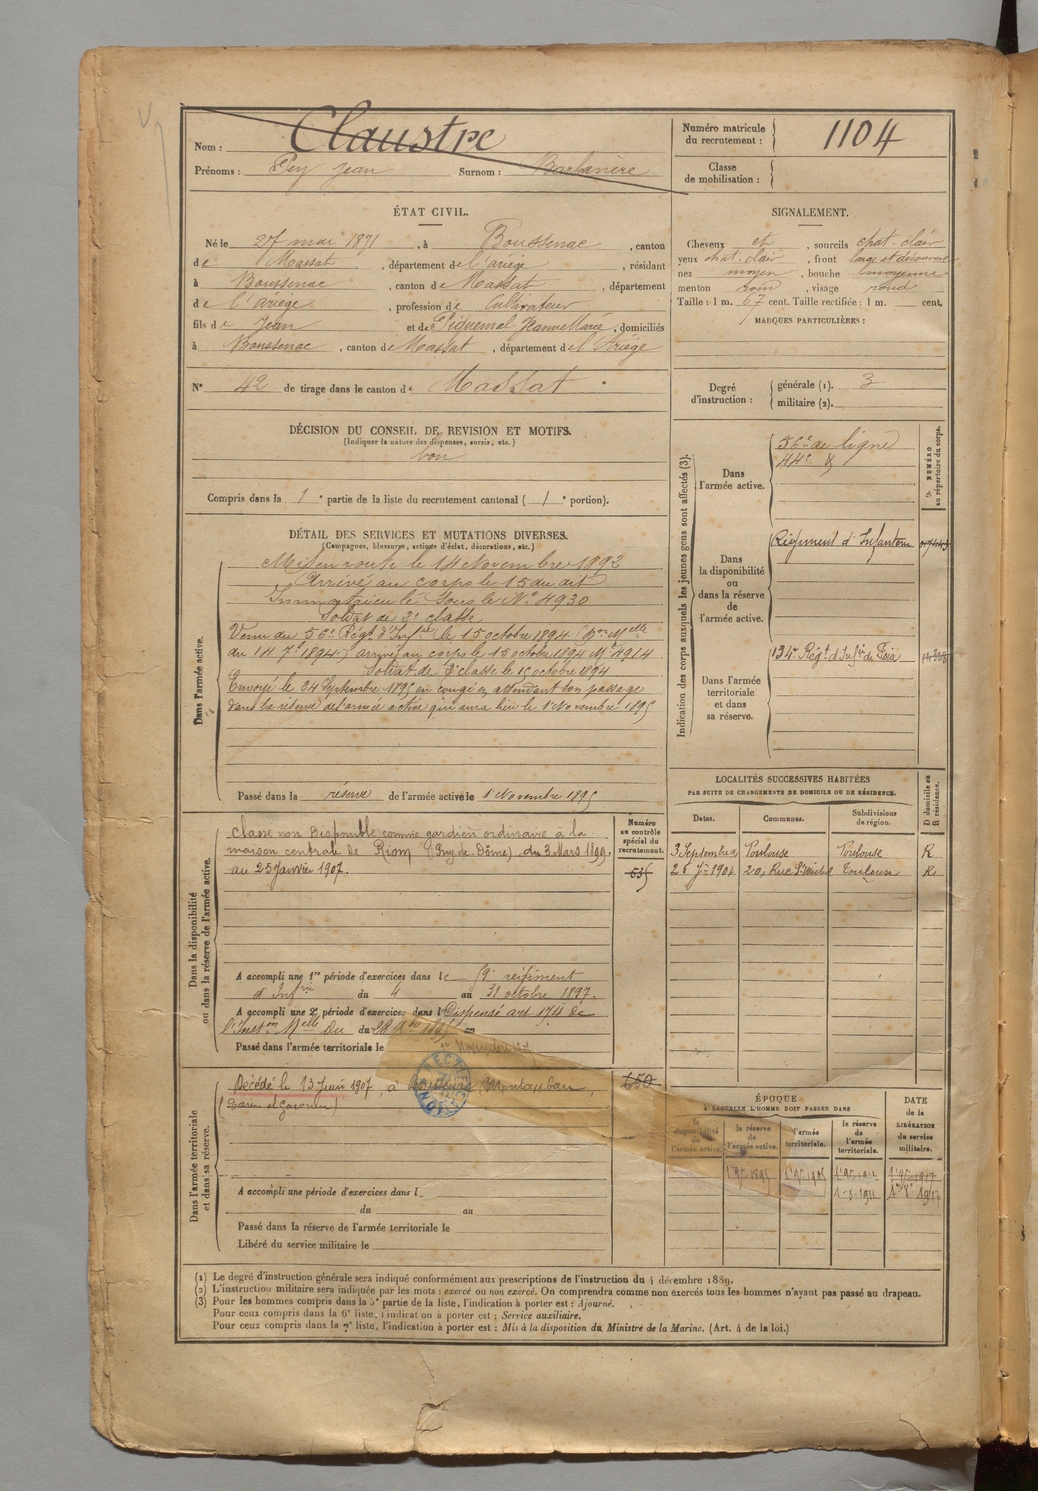 Nom : Claustre
Prénoms : Pey Jean Surnom : Barbanère
Numéro matricule du recrutement : 1104
Classe de mobilisation :
ÉTAT CIVIL.
Né le 27 mai 1871, à Boussenac, canton
de Massat, département de l'ariège, résidant
à Boussenac, canton de Massat, département
de l'ariège, profession de Cultivateur
fils de Jean et de Piquemal Jeanne Marie, domiciliés
à Boussenac, canton de Massat, département de l'Ariège
N° 42 de tirage dans le canton de Massat
DÉCISION DU CONSEIL DE REVISION ET MOTIFS.
(Indiquer la nature des dispenses, sursis, etc.)
bon
Compris dans la 1e partie de la liste du recrutement cantonal (1e portion).
SIGNALEMENT.
Cheveux et, sourcils chat-clair
yeux chat. clair, front large et découvert
nez moyen, bouche moyenne
menton rond, visage rond
Taille : 1 m. 67 cent. Taille rectifiée : 1 m. cent.
MARQUES PARTICULIÈRES :
Degré d'instruction :
générale (1). 3
militaire (2).
DÉTAIL DES SERVICES ET MUTATIONS DIVERSES.
(Campagnes, blessures, actions d'éclat, décorations, etc.)
Dans l'armée active.
Mis en route le 14 Novembre 1892
Arrivé au corps le 15 du dit
Immatriculé sous le N° 4930
Soldat de 2e classe
Venu du 56e Régt d'Inf ie le 15 octobre 1894 (Bon Melle
du 14 7e 1894) arrivé au corps le 15 octobre 1894 Me 4914
Soldat de 2e classe le 15 octobre 1894
Envoyé le 24 Septembre 1895 en congé en attendant son passage
dans la réserve de l'armée active qui aura lieu le 1er Novembre 1895
Passé dans la réserve de l'armée active le 1er Novembre 1895
Indication des corps auxquels les jeunes gens sont affectés (3).
N° NUMÉRO au répertoire du corps.
Dans l'armée active.
56e de ligne
44e
Dans la disponibilité ou dans la réserve de l'armée active.
Régiment d'Infanterie
Dans l'armée territoriale et dans sa réserve.
134e Régt d'Infie de Foix
Dans la disponibilité ou dans la réserve de l'armée active.
Numéro au contrôle spécial du recrutement.
Classé non Disponible comme gardien ordinaire à la
maison centrale de Riom (Puy-de-Dôme) du 3 Mars 1899.
au 25 Janvier 1907.
635
A accompli une 1re période d'exercices dans le 59e régiment
d'Infrie du 4 au 31 octobre 1897.
A accompli une 2e période d'exercices dans l Dispensé art
l'Inston Melle du 28 1895 au
Passé dans l'armée territoriale le
1er Novembre
LOCALITÉS SUCCESSIVES HABITÉES
PAR SUITE DE CHANGEMENTS DE DOMICILE OU DE RÉSIDENCE.
Dates. Communes. Subdivisions de région. D domicile ou R résidence.
3 Septembre Toulouse Toulouse R
26 1904 20, Rue St Michel Toulouse R
Dans l'armée territoriale et dans sa réserve.
Décédé le 13 Juin 1907, à Montauban,
(Tarn et Garonne)
650
A accompli une période d'exercices dans l
du au
Passé dans la réserve de l'armée territoriale le
Libéré du service militaire le
ÉPOQUE
A LAQUELLE L'HOMME DOIT PASSER DANS
la disponibilité de l'armée active. la réserve de l'armée active. l'armée territoriale. la réserve de l'armée territoriale.
DATE de la LIBÉRATION du service militaire.
(1) Le degré d'instruction générale sera indiqué conformément aux prescriptions de l'instruction du 4 décembre 1889.
(2) L'instruction militaire sera indiquée par les mots : exercé ou non exercé. On comprendra comme non exercés tous les hommes n'ayant pas passé au drapeau.
(3) Pour les hommes compris dans la 5e partie de la liste, l'indication à porter est : Ajourné.
Pour ceux compris dans la 6e liste, l'indication à porter est : Service auxiliaire.
Pour ceux compris dans la 7e liste, l'indication à porter est : Mis à la disposition du Ministre de la Marine. (Art. 4 de la loi.)